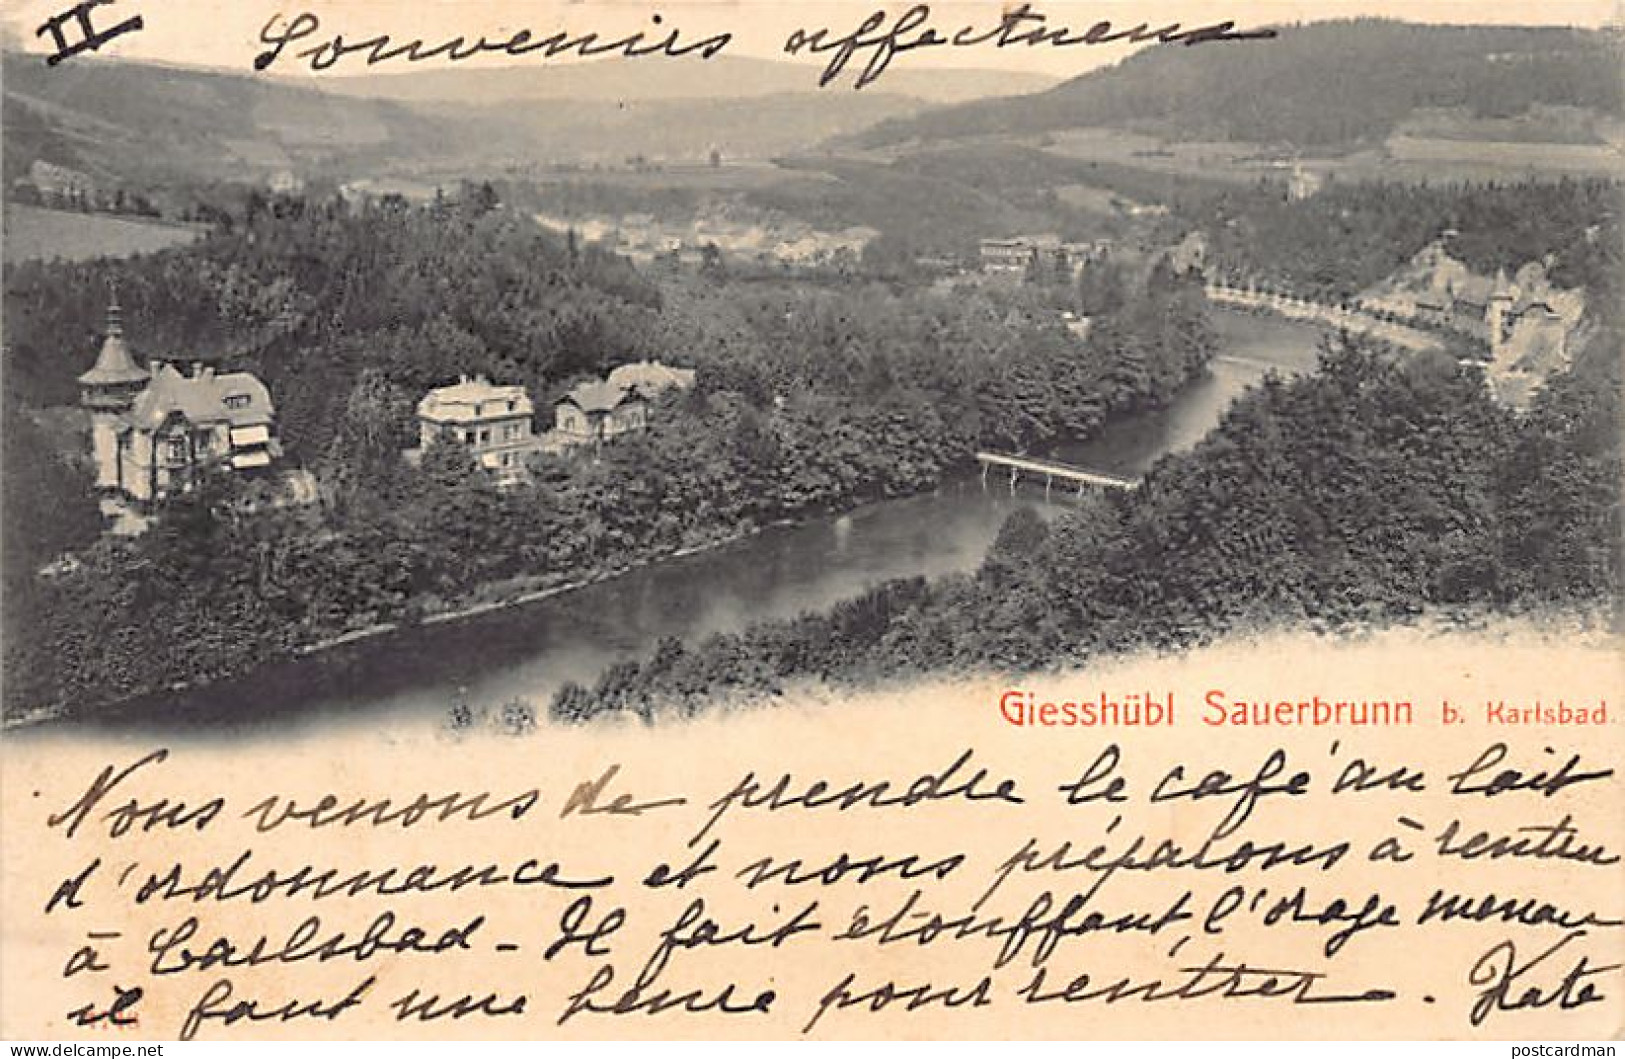 II Souvenirs affectueux
Giesshübl Sauerbrunn b. Karlsbad.
Nous venons de prendre le café au lait
d'ordonnance et nous préparons à rentrer
à Carlsbad - Il fait étouffant, l'orage menace
il faut une heure pour rentrer. Kate
postcardman